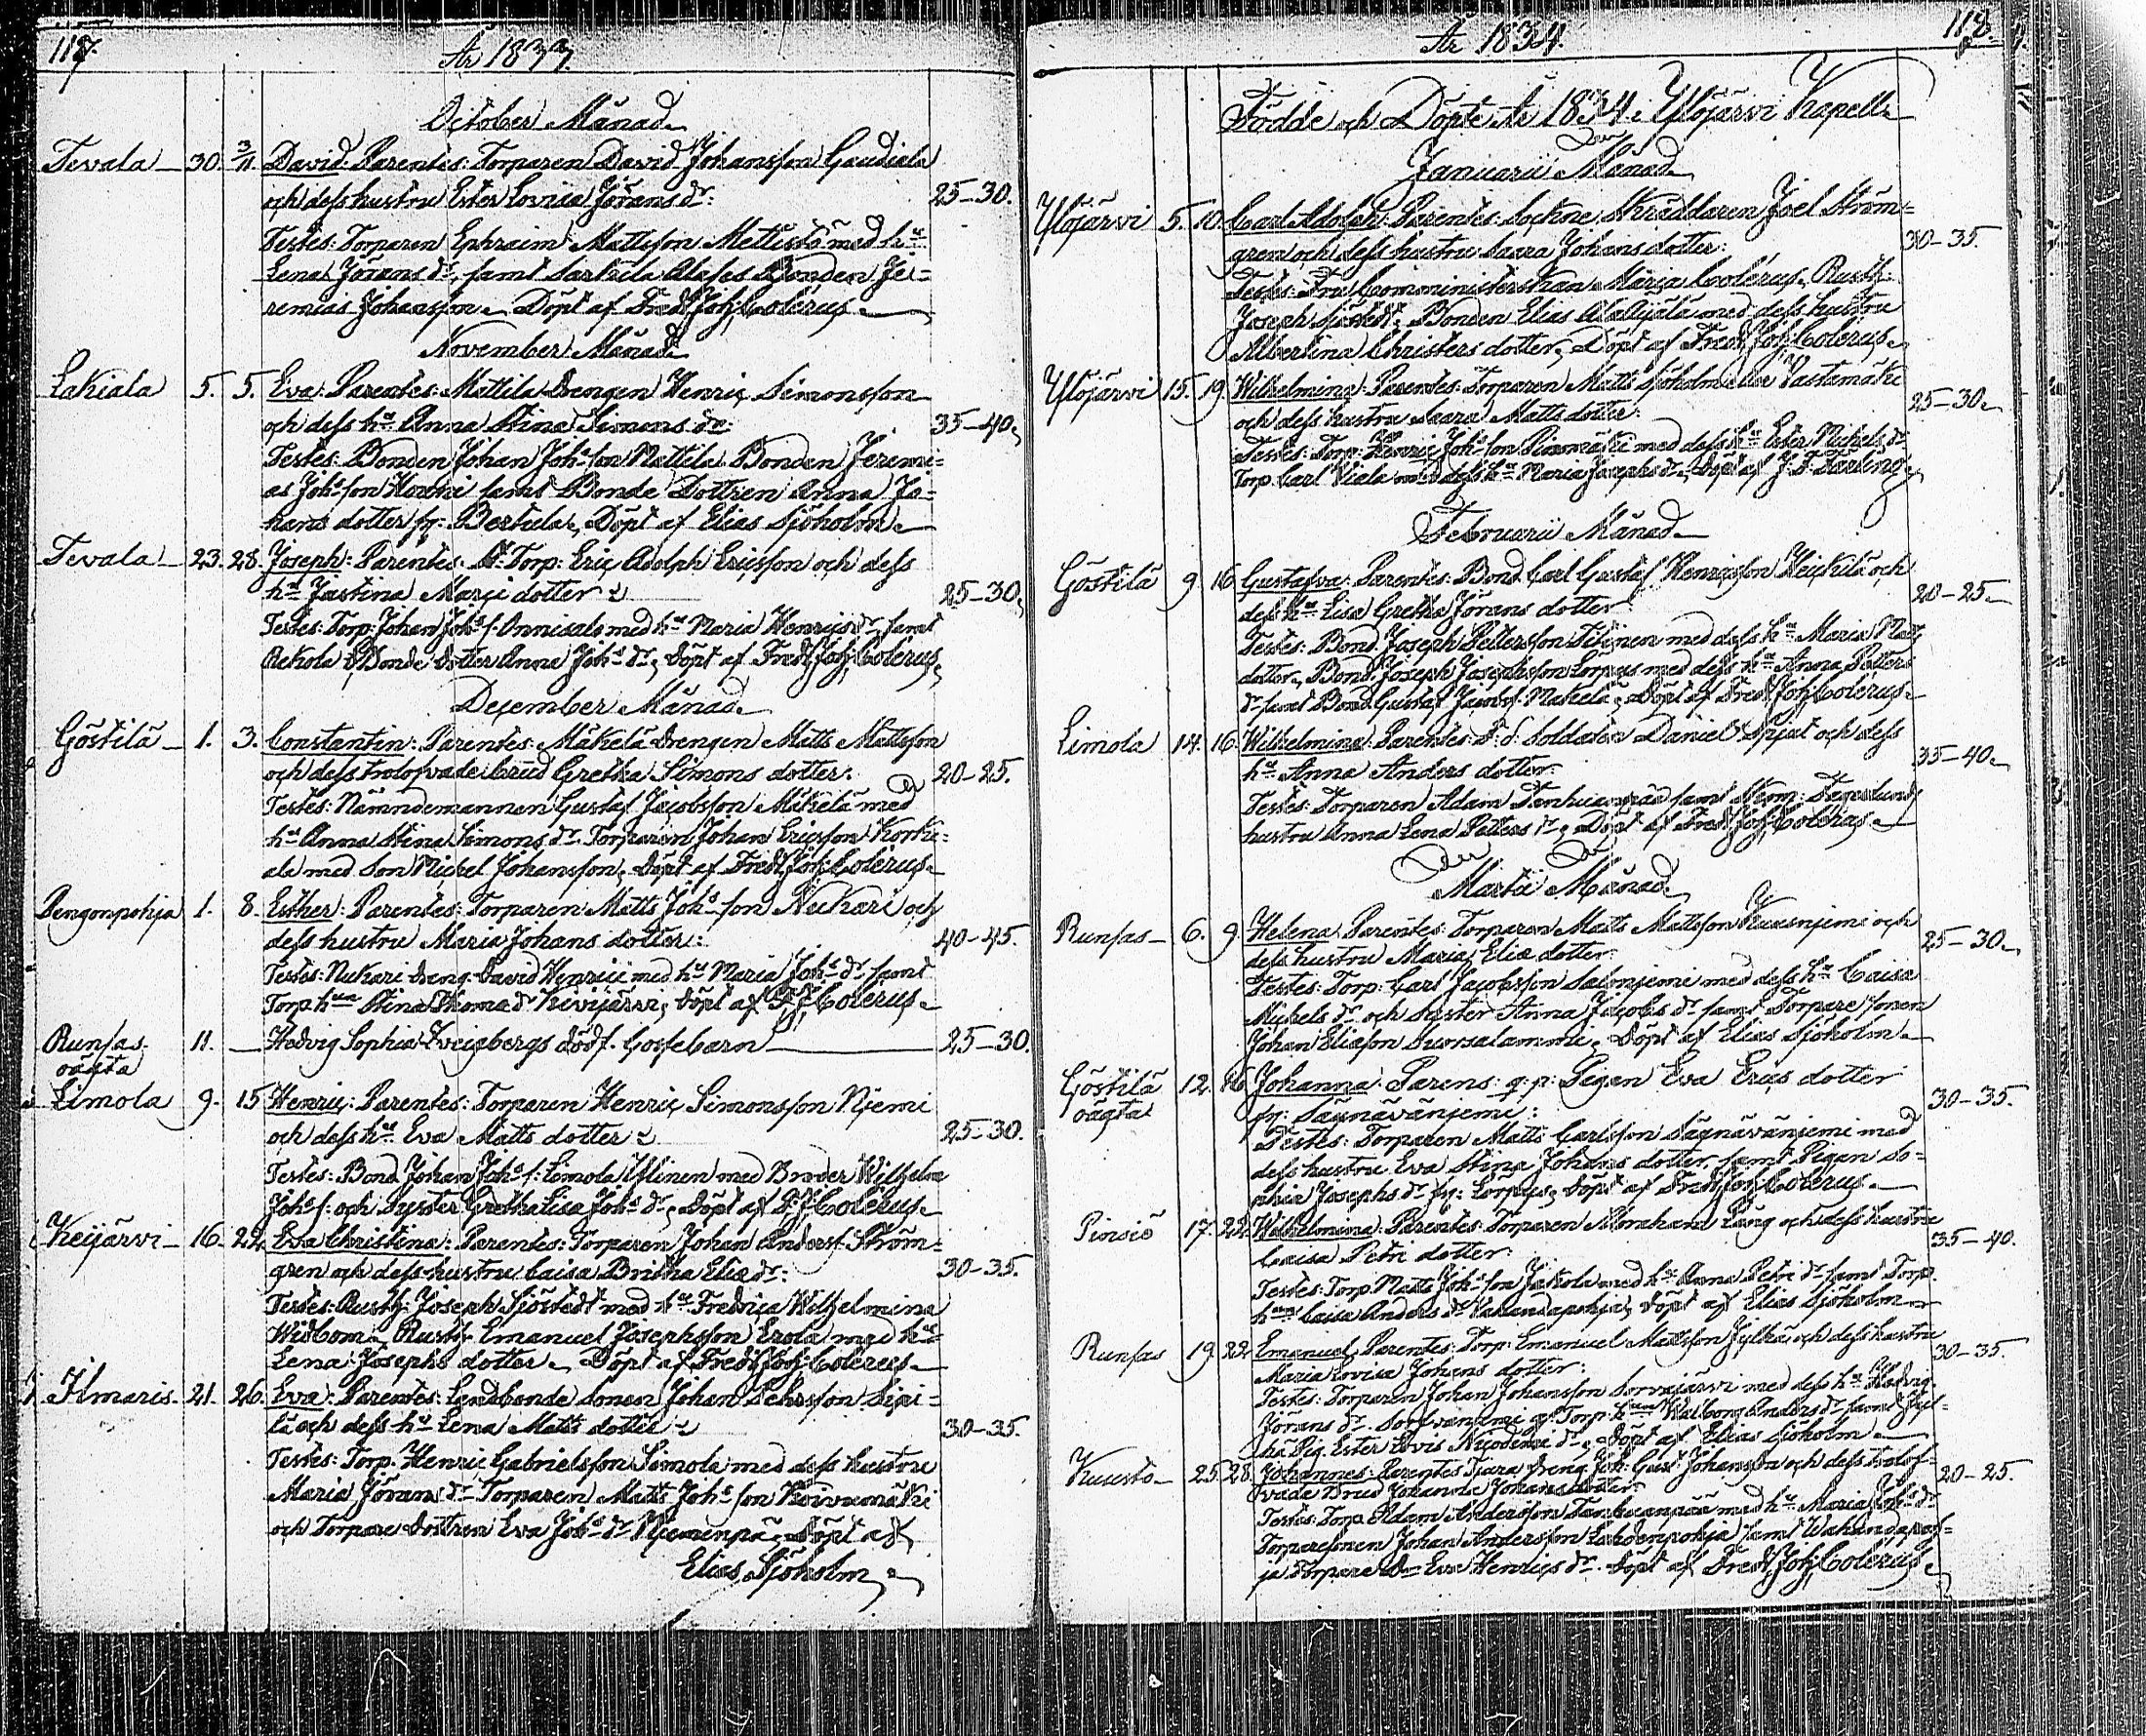 117.
År 1833.
October Månad
Tevala 30. 3/11. David: Parentes: Torparen David Johansson Gaudiala
och dess hustru Ester Lovisa Jörans dr: 25–30.
Testes: Torparen Ephraim Mattsson Mettistö med hu
Lena Jörans dr, samt Sarkila Alases Bonden Je-
remias Johansson. Döpt af Fredr Joh: Colérus.
November Månad
Lakiala 5. 5. Eva: Parentes: Mattila Drengen Henric Simonsson
och dess hu Anna Stina Simons dr: 35–40.
Testes: Bonden Johan Johs son Mattila Bonden Jeremi-
as Johs son samt Bonde Dottren Anna Jo-
hans dotter fr: Bertula, Döpt af Elias Sjöholm
Tevala 23. 28. Joseph: Parentes: Torp: Eric Adolph Ericsson och dess
hu Justina Marji dotter 25–30.
Testes: Torp: Johan Johs s: Onnisala med hu Maria Henrics dr, samt
Rekola Bonde dotter Anna Johs dr, Döpt af Fredr Joh: Colérus.
December Månad
Göstilä 1. 3. Constantin: Parentes: Mäkelä Drengen Matts Mattsson
och dess trolofvade brud Gretha Simons dotter. 20–25.
Testes: Nämndemannen Gustaf Jacobsson Mäkelä med
hu Anna Stina Simons dr. Torparen Johan Ericsson Korki-
ala med Son Michel Johansson, Döpt af Fredr Joh: Colérus.
Pengonpohja 1. 8. Esther: Parentes: Torparen Matts Johs son Nukari och
dess hustru Maria Johans dotter: 40–45.
Testes: Nukari Dreng David Henrici med hu Maria Johs dr samt
Torp: hun Stina Thomæ dr Kivijärvi, Döpt af F: J: Colérus.
Runsas oägta 11. Hedvig Sophia Zweigbergs dödf. Gossebarn 25–30.
Limola 9. 15. Henric: Parentes: Torparen Henric Simonsson Njemi
och dess hu Eva Matts dotter 25–30.
Testes: Bond: Johan Johs s: Limola Yllinen med Broder Wilhelm
Johs s: och Syster Gretha Lisa Johs dr, Döpt af F: J: Colérus.
Keijärvi 16. 22. Eva Christina: Parentes: Torparen Johan Anders s: Ström-
gren och dess hustru Caisa Britha Eliæ dr: 30–35.
Testes: Rusth: Joseph Sjöstedt med hu Fredrica Wilhelmina
Widbom, Rusth: Emanuel Josephsson Erola med hu
Lena Josephs dotter. Döpt af Fredr Joh: Colérus.
Ilmaris 21. 26. Eva: Parentes: Landbonde Sonen Johan Pehrsson Sipi-
lä och dess hu Lena Matts dotter 30–35.
Testes: Torp: Henric Gabrielsson Simola med dess hustru
Maria Jörans dr Torparen Matts Johs son Koivumäki
och Torpare dottren Eva Johs dr Njemenpä, Döpt af
Elias Sjöholm
År 1834. 118.
Födde och Döpte År 1834 i Ylöjärvi Kapell
Januarii Månad
Ylöjärvi 5. 10. Carl Adolph: Parentes: Sockne Skräddaren Joel Ström-
gren och dess hustru Saara Johans dotter: 30–35.
Testes: Fru Comministerskan Maria Colérus, Rusth:
Joseph Sjöstedt, Bonden Elias Alakylä med dess hustru
Albertina Christers dotter, Döpt af Fredr Joh: Colérus.
Ylöjärvi 15. 19. Wilhelmina: Parentes: Torparen Matts Sjöholm eller Vastamäki
och dess hustru Saara Matts dotter: 25–30.
Testes: Torp: Henric Johs son med dess hu Ester Michels dr
Torp: Carl Viala med dess hu Maria Josephs dr, Döpt af
Februarii Månad
Göstilä 9. 16. Gustafva: Parentes: Bond: Carl Gustaf Henricsson Heikilä och
dess hu Lisa Gretha Jörans dotter 20–25.
Testes: Bond: Joseph Pettersson med dess hu Maria Mats
dotter, Bond: Joseph Josephsson Lorpus med dess hu Anna Petters
dr samt Bond: Gustaf Jacobs s: Makelä, Döpt af Fredr Joh: Colérus.
Limola 14. 16. Wilhelmina: Parentes: F: d: Soldaten Daniel Spjut och dess
hu Anna Anders dotter: 35–40.
Testes: Torparen Adam Tanhuanpää samt Skom: Fagerlunds
hustru Anna Lena Petters dr, Döpt af Fredr Joh: Colérus.
Martii Månad
Runsas 6. 9. Helena: Parentes: Torparen Matts Mattsson Kuusnjemi och
dess hustru Maria Eliæ dotter: 25–30.
Testes: Torp: Carl Jacobsson Salonjemi med dess hu Caisa
Michels dr och Syster Anna Jacobs dr samt Torpare sonen
Johan Eliasson Suorsalammi, Döpt af Elias Sjöholm
Göstilä oägta 12. 16. Johanna: Parens: q: p: Pigan Eva Erics dotter
fr: Säynävänjemi: 30–35.
Testes: Torparen Matts Carlsson Säynävänjemi med
dess hustru Eva Stina Johans dotter, samt Pigan So-
phia Josephs dr fr: Lorpus, Döpt af Fredr Joh: Colérus.
Pinsiö 17. 22. Wilhelmina: Parentes: Torparen Abraham Lång och dess hustru
Caisa Petri dotter: 35–40.
Testes: Torp: Matts Johs son Jakola med hu Anna Petri dr samt Torp:
hun Caisa Anders dr Vahandapohja, Döpt af Elias Sjöholm
Runsas 19. 22. Emanuel: Parentes: Torp: Emanuel Mattsson Jylhä och dess hustru
Maria Lovisa Johans dotter: 30–35.
Testes: Torparen Johan Johansson Sorvajärvi med dess hu Hedvig
Jörans dr Torp: hun Walborg Anders dr samt Jyl-
hä Pig: Ester Lovis Nicodemi dr, Döpt af Elias Sjöholm
Kuusto 25. 28. Johannes: Parentes: Tjara Dreng Joh: Gust: Johansson och dess trolof-
vade Brud Johanna Johans dotter: 20–25.
Testes: Torp: Adam Andersson Tanhuanpää med hu Maria Johs dr
Torpare sonen Johan Andersson Lahdenpohja samt Wahandapoh-
ja Torpare Dr Eva Henrics dr. Döpt af Fredr Joh: Colérus.